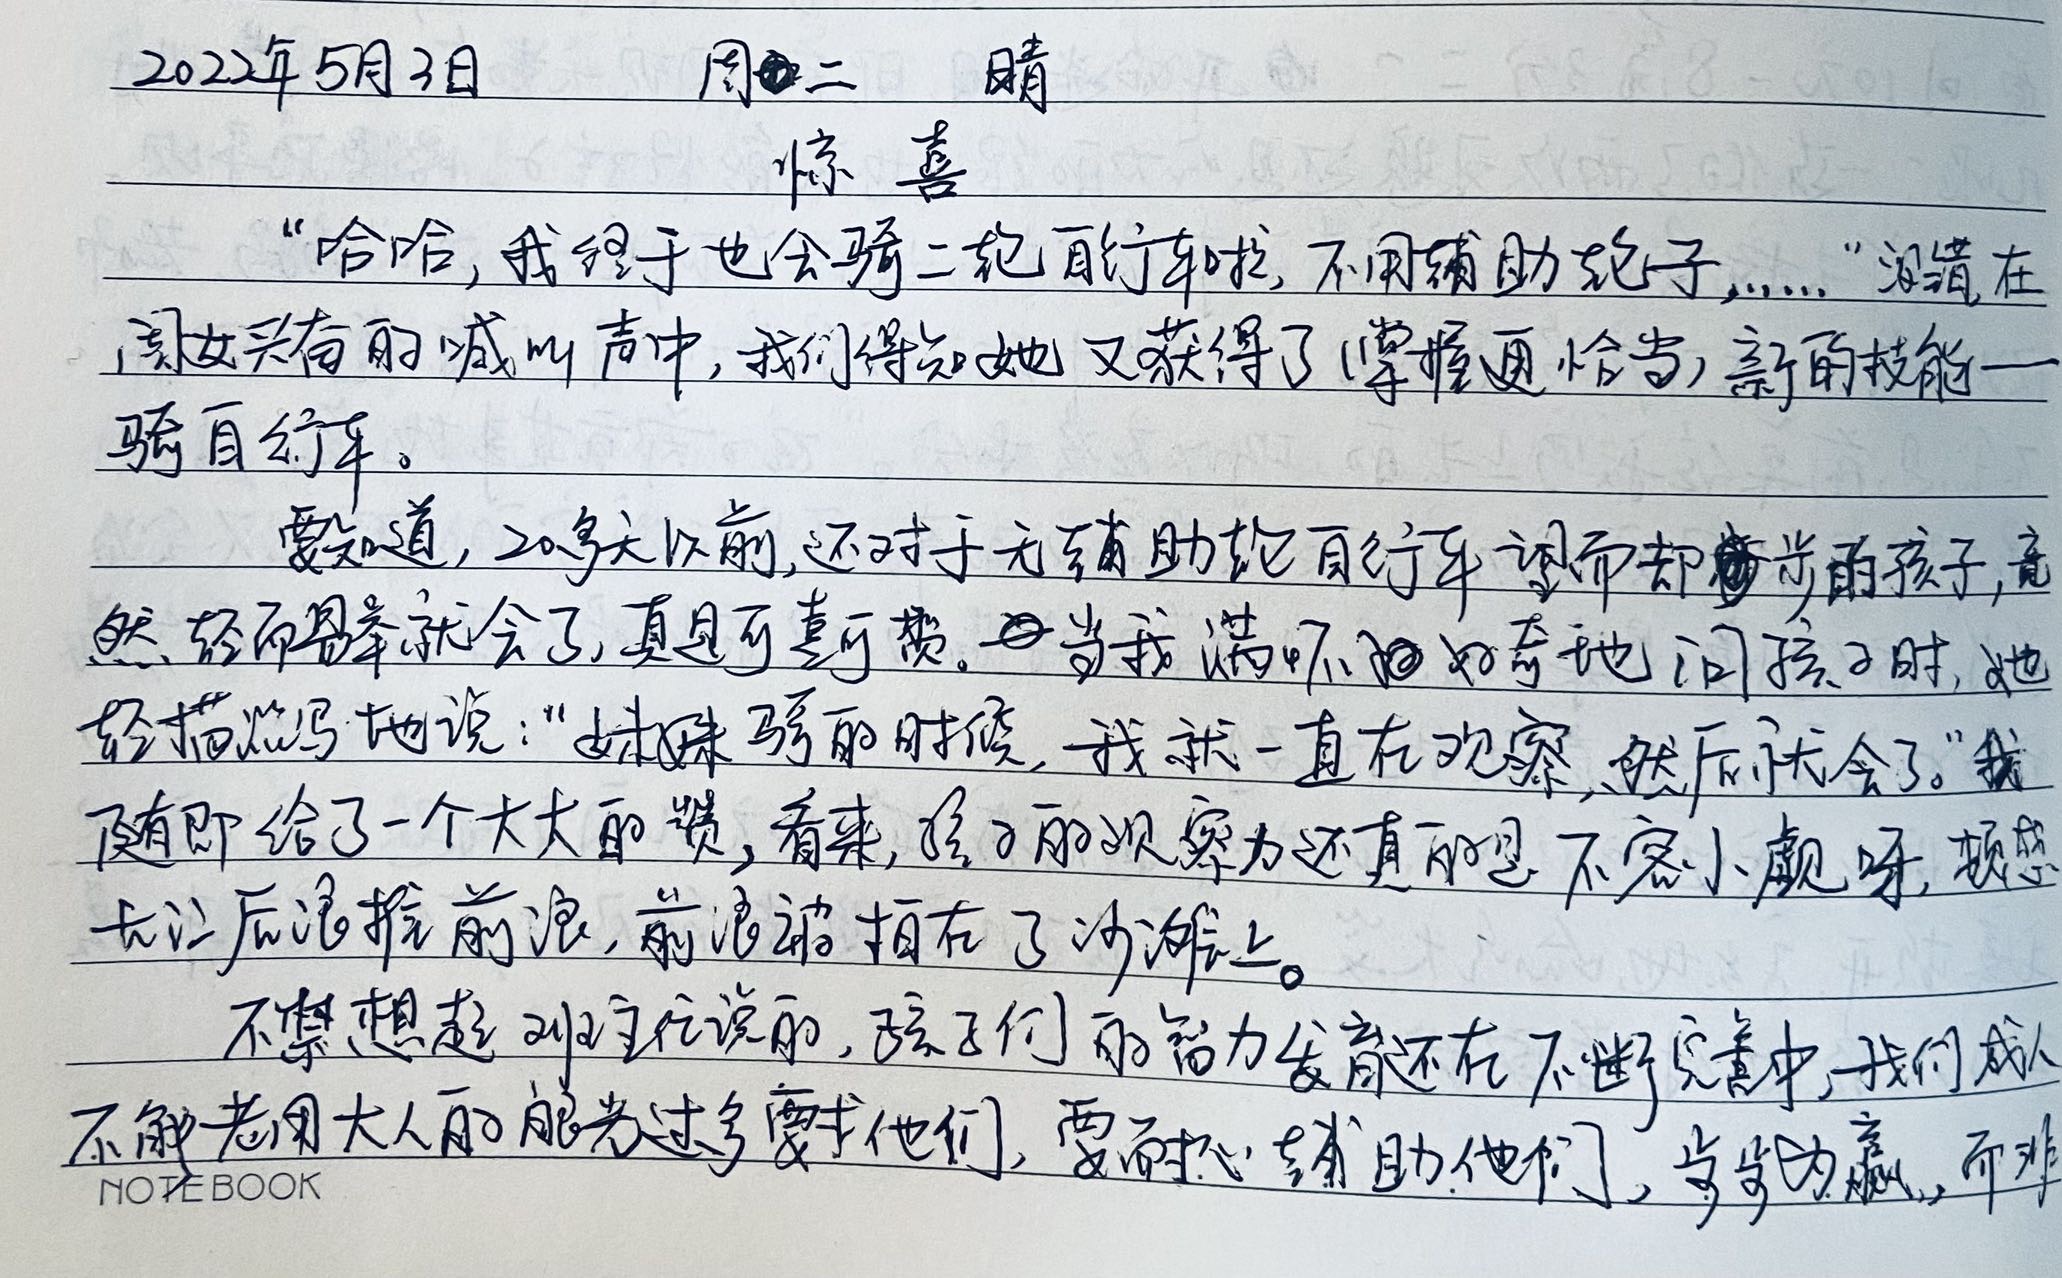 2022年5月3日 周二 晴
惊喜
“哈哈,我终于也会骑二轮自行车啦,不用辅助轮子,……”没错,在
闺女兴奋的喊叫声中,我们得知她又获得了(掌握更恰当)新的技能——
骑自行车。
要知道,20多天以前,还对于无辅助轮自行车望而却步的孩子,竟
然轻而易举就会了,真是可喜可赞。当我满怀好奇地问孩子时,她
轻描淡写地说:“妹妹骑的时候,我就一直在观察,然后就会了。”我
随即给了一个大大的赞,看来,孩子的观察力还真的是不容小觑呀,顿感
长江后浪推前浪,前浪被拍在了沙滩上。
不禁想起班主任说的,孩子们的智力发育还在不断完善中,我们成人
不能老用大人的眼光过多要求他们,要耐心辅助他们,步步为赢,而非
NOTEBOOK